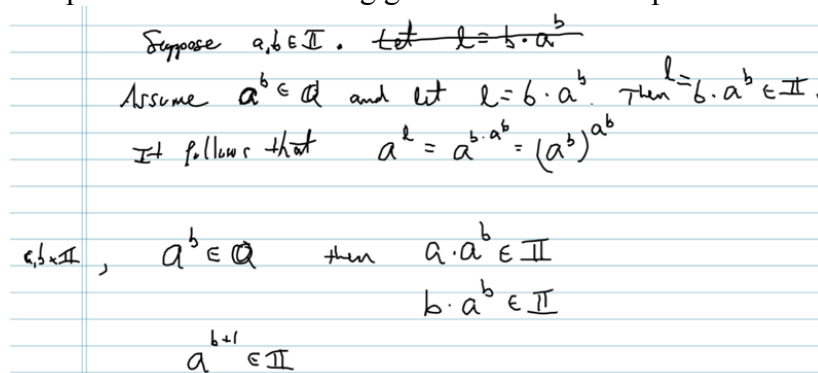 Suppose a,b ∈ 𝕀. Let l = b · a^b
Assume a^b ∈ ℚ and let l = b · a^b. Then l = b · a^b ∈ 𝕀.
It follows that a^l = a^{b · a^b} = (a^b)^{a^b}
a,b ∈ 𝕀, a^b ∈ ℚ then a · a^b ∈ 𝕀
b · a^b ∈ 𝕀
a^{b+1} ∈ 𝕀